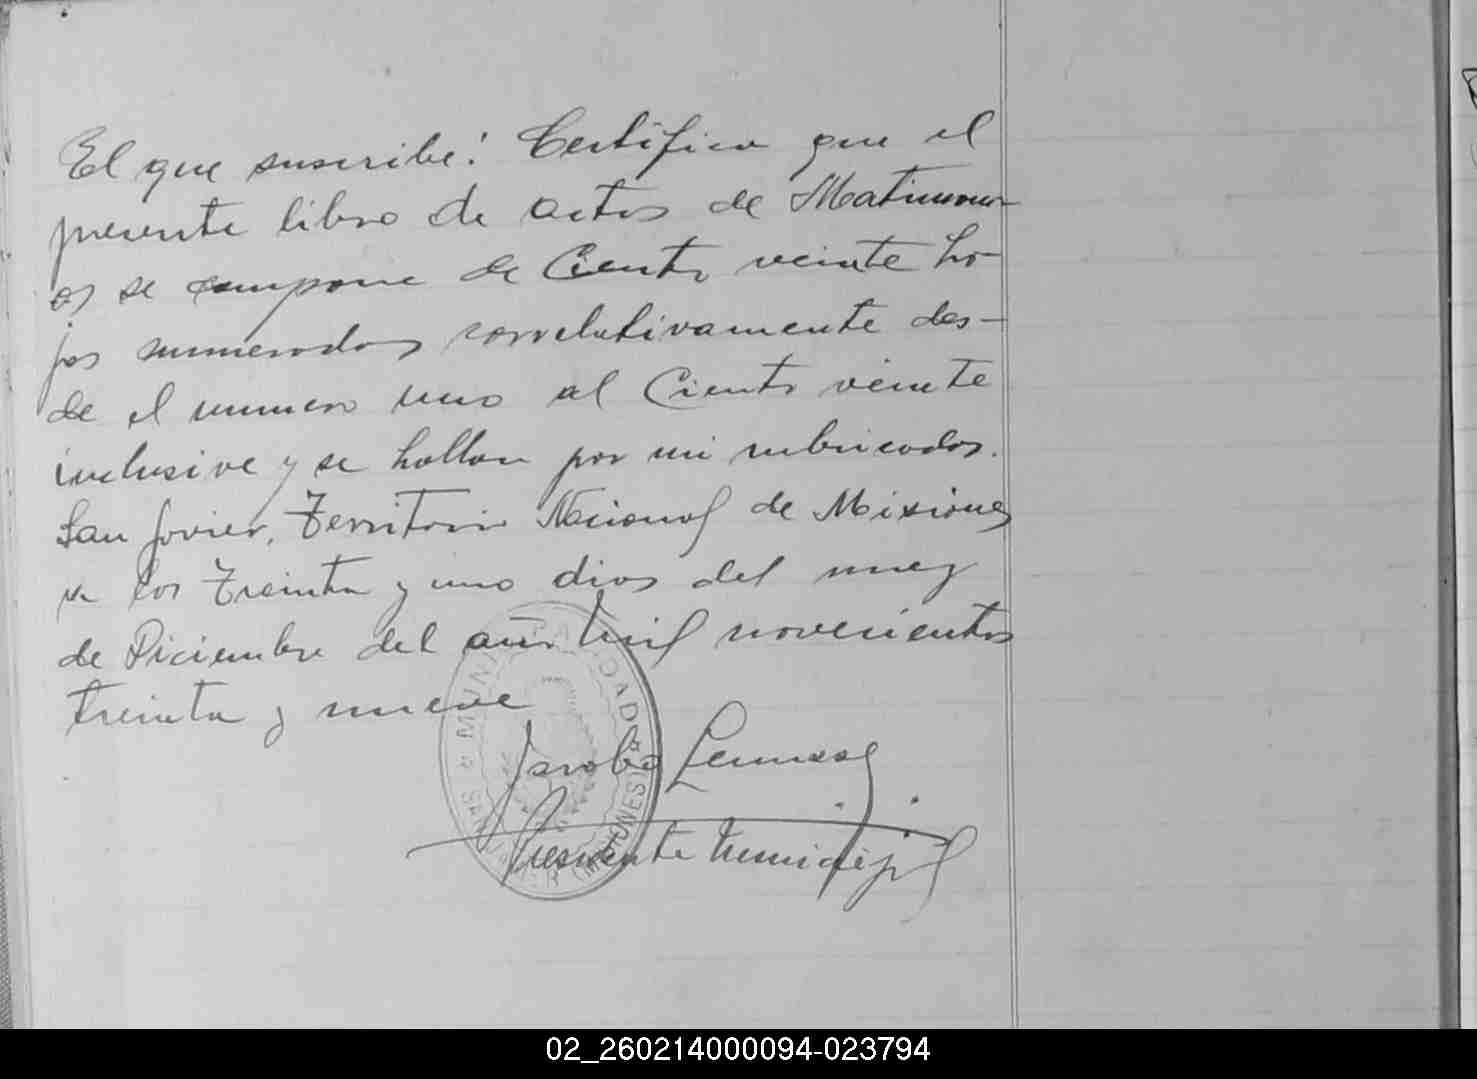 El que suscribe: Certifica que el
presente libro de actos de Matrimoni
os se compone de Ciento veinte ho-
jas numerados correlativamente des-
de el numero uno al Ciento veinte
inclusive y se hallan por mi rubricados.
San Javier, Territorio Nacional de Misiones
a los treinta y uno dias del mez
de Diciembre del año mil novecientos
treinta y nueve
Jacobo
Presidente Municipal
MUNICIPALIDAD
SAN JAVIER (MISIONES)
02_260214000094-023794